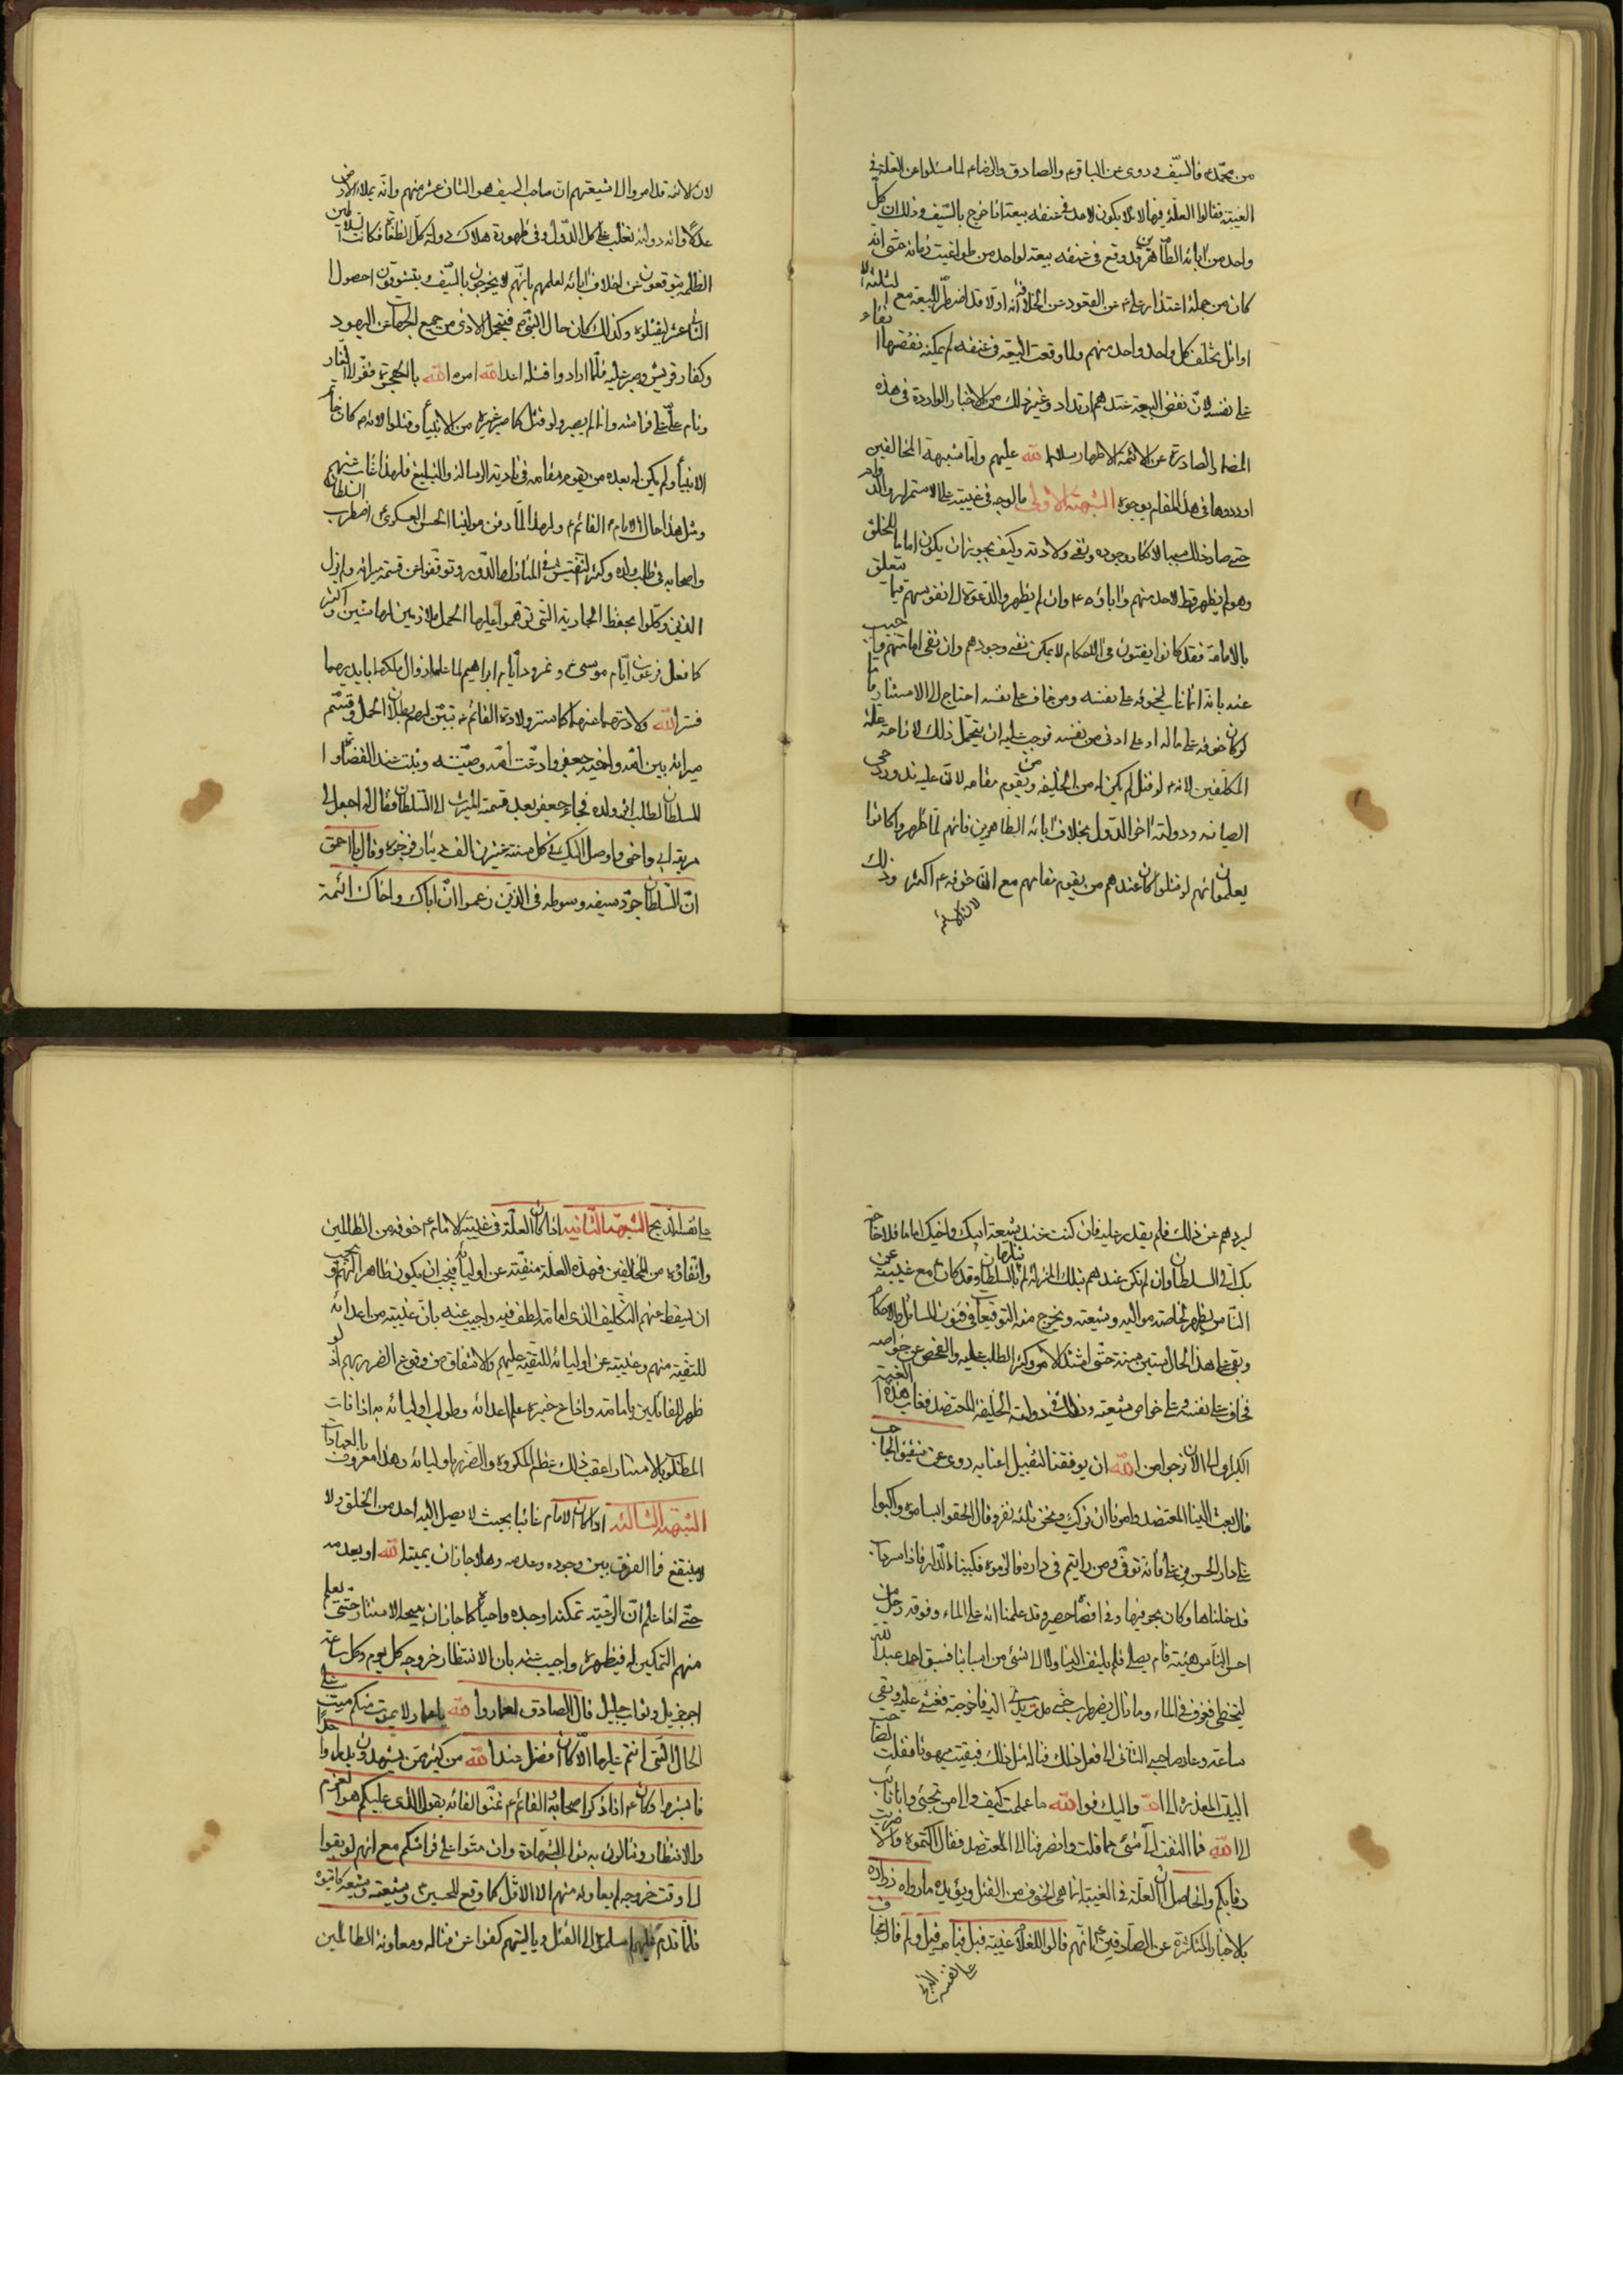 من محمد ص فالسيف وروى عن الباقر ع والصادق والرضا ع لما سئلوا عن العلة في
الغيبة فقالوا العلة فيها لئلا يكون لاحد في عنقه بيعة اذا خرج بالسيف وذلك ان كل
واحد من آبائه الطاهرين قد وقع في عنقه بيعة لواحد من طواغيت زمانه حتى انه
كان من جملة اعتذار علي ع عن القعود عن الخلافة انه اولا قد اضطر للبيعة مع
اوائل تخلف كل واحد واحد منهم ولما وقعت البيعة في عنقه لم يمكنه نقضها
على نفسه لان نقض البيعة عندهم ارتداد وغير ذلك من الاخبار الواردة في هذه
الصادرة عن الائمة الاطهار سلام الله عليهم واما شبهة المخالفين
اوردوها في هذا المقام بوجوه الشبهة الاولى ما الوجه في غيبته على الاستمرار والدوام
حتى صار ذلك سببا لانكار وجوده ونفي ولادته وكيف يجوز ان يكون اماما للخلق
وهو لم يظهر قط لاحد منهم وآباؤه ع وان لم يظهروا الدعوة الى انفسهم فيما يتعلق
بالامامة فقد كانوا يفتون في الاحكام لا يمكن نفي وجودهم وان نفى امامتهم واجيب
عنه بانه انما غاب لخوفه على نفسه ومن خاف على نفسه احتاج الى الاستتار فاما
لو كان خوفه على ماله او على اذى من نفسه لوجب عليه ان يتحمل ذلك لازاحة علة
المكلفين لانه لو قتل لم يكن له من الخليفة من يقوم مقامه لان عليه تدور رحى
الصانه ودولته اخر الدول بخلاف آبائه الطاهرين فانهم لما ظهروا كانوا
يعلمون انهم لو قتلوا كان عندهم من يقوم مقامهم مع ان خوفه ع اكثر وذلك
لان الائمة
لان الائمة قد امروا الى شيعتهم ان صاحب السيف هو الثاني عشر منهم وانه يملاء الارض
عدلا وان دولته تغلب على كل الدول وفي ظهوره هلاك دولة كل الطغاة فكانت السلاطين
الظلمة يتوقفون عن اتلاف آبائه لعلمهم بانهم لا يخرجون بالسيف ويتشوقون حصول
الثاني عشر ليقتلوه وكذلك كان حال النبي ص فيتحمل الاذى من جميع الجهات عن اليهود
وكفار قريش وصبر عليه فلما ارادوا قتله اعداء الله امره الله بالهجرة ففر الى الغار
ونام علي على فراشه وانما لم يصبر ولو قتل كما صبر غيره من الانبياء وقتلوا لانه ع كان خاتم
الانبياء ولم يكن له بعده من يقوم مقامه في تادية الرسالة والتبليغ فلهذا غاب عنهم
ومثل هذا حال الامام القائم ع ولهذا لما دفن مولينا الحسن العسكري ع اضطرب السلطان
واصحابه في طلب ولده وكثر التفتيش في المنازل والدور وتوقفوا عن قسمة ميراثه ولم يزل
الذين وكلوا بحفظ الجارية التي توهموا عليها الحمل ملازمين لها سنتين واكثر
كما فعل فرعون ايام موسى ع ونمرود ايام ابراهيم لما علما زوال ملكهما بايديهما
فستر الله ولادتهما عنهما كما ستر ولادة القائم ع تبين لهم بطلان الحمل وقسم
ميراثه بين امه واخيه جعفر وادعت امه وصيته وثبت عند القضاة
للسلطان لطلب اثر ولده فجاء جعفر بعد قسمة الميراث الى السلطان فقال له اجعل لي
مرتبة ابي واخي واوصل اليك في كل سنة عشرين الف دينار فزجره وقال يا احمق
ان السلطان جرد سيفه وسوطه في الذين زعموا ان اباك واخاك ائمة
ليردهم عن ذلك فلم يقدر عليه فان كنت عند شيعة ابيك واخيك اماما فلا حاجة
بك الى السلطان وان لم تكن عندهم بتلك المنزلة لم تنلها بالسلطان وقد كان ع مع غيبته عن
الناس يظهر لخاصته مواليه وشيعته ويخرج منه التوقيعات في فنون المسائل والاحكام
وبقي على هذا الحال ستين سنة حتى اشتد الامر وكثر الطلب عليه والفحص عن خواصه
فخاف على نفسه وعلى خواص شيعته وذلك في دولة الخليفة المعتضد فغاب هذه الغيبة
الكبرى الى الآن نرجوا من الله ان يوفقنا لتقبيل اعتابه روى عن الحاجب
قال بعث الينا المعتضد وامرنا ان نركب ونحن ثلثة نفر وقال الحقوا بسامره واكبسوا
على دار الحسن بن علي فانه توفى ومن رايتم في داره فاكبسنا الدار فاذا سرداب
فدخلناها وكان بحر فيها وفي اقصاه حصير قد علمنا انه على الماء وفوقه رجل من
احسن الناس هيئة قام يصلي فلم يلتفت الينا ولا الى شئ من اسبابنا فسبق احمد بن عبد الله
ليتخطى فغرق في الماء وما زال يضطرب حتى مددت يدي اليه فاخرجته فغشى عليه وبقى
ساعة وعاد صاحبي الثاني الى فعل ذلك فناله مثل ذلك فبقيت مبهوتا فقلت لصاحب
البيت المعذرة الى الله واليك فوالله ما علمت كيف والى من نجئ وانا تائب
الى الله فما التفت الى شئ مما قلت وانصرفنا الى المعتضد فقال اكتموه والا ضربت
رقابكم والحاصل ان العلة في الغيبة انما هي الخوف من القتل ويؤيده ما رواه زرارة
بالاخبار المتكثرة عن الصادقين ع انهم قالوا للغلام غيبة قبل قيامه قيل ولم قال يخاف
على نفسه الذبح
على نفسه الذبح الشبهة الثانية اذا كان العلة في غيبة الامام ع خوفه من الظالمين
واتقاؤه من المخالفين فهذه العلة منفية عن اوليائه فيجب ان يكون ظاهرا لهم او يجب
ان يسقط عنهم التكليف الذي امامته لطف فيه واجيب عنه بان غيبته من اعدائه
للتقية منهم وغيبته عن اوليائه للتقية عليهم والاشفاق من وقوع الضرر بهم اذ لو
ظهر للقائلين بامامته واذاع خبره علم اعدائه وطولب اوليائه به اذا فات
المطلوب بالاستتار اعقب ذلك عظم المكروه والضرر باوليائه وهذا معروف بالعادات
الشبهة الثالثة اذا كان الامام غائبا بحيث لا يصل اليه احد من الخلق ولا
ينتفع فما الفرق بين وجوده وعدمه وهلا جاز ان يميته الله او يعدمه
حتى اذا علم ان الرعية تمكنه اوجده واحياه كما جاز ان يبيحه الاستتار حتى يعلم
منهم التمكين له فيظهره واجيب عنه بان الانتظار خروجه كل يوم وكل ساعة
اجر جزيل وثواب جليل قال الصادق لعمار والله يا عمار لا يموت منكم ميت على
الحال التي انتم عليها الا كان افضل عند الله من كثير ممن يشهد بدرا واحدا
فابشروا وكان ع اذا ذكر اصحابه القائم ع تمنوا لقائه يقول الذي عليكم هو العزم
والانتظار وتنالون به ثواب الشهادة وان متوا على فراشكم مع انهم لو بقوا
الى وقت خروجه لم يعاونه منهم الا الاقل كما وقع للحسين ع وشيعته
فلما قدم عليهم اسلموه الى القتل ويا ليتهم كفوا عن قتاله ومعاونة الظالمين